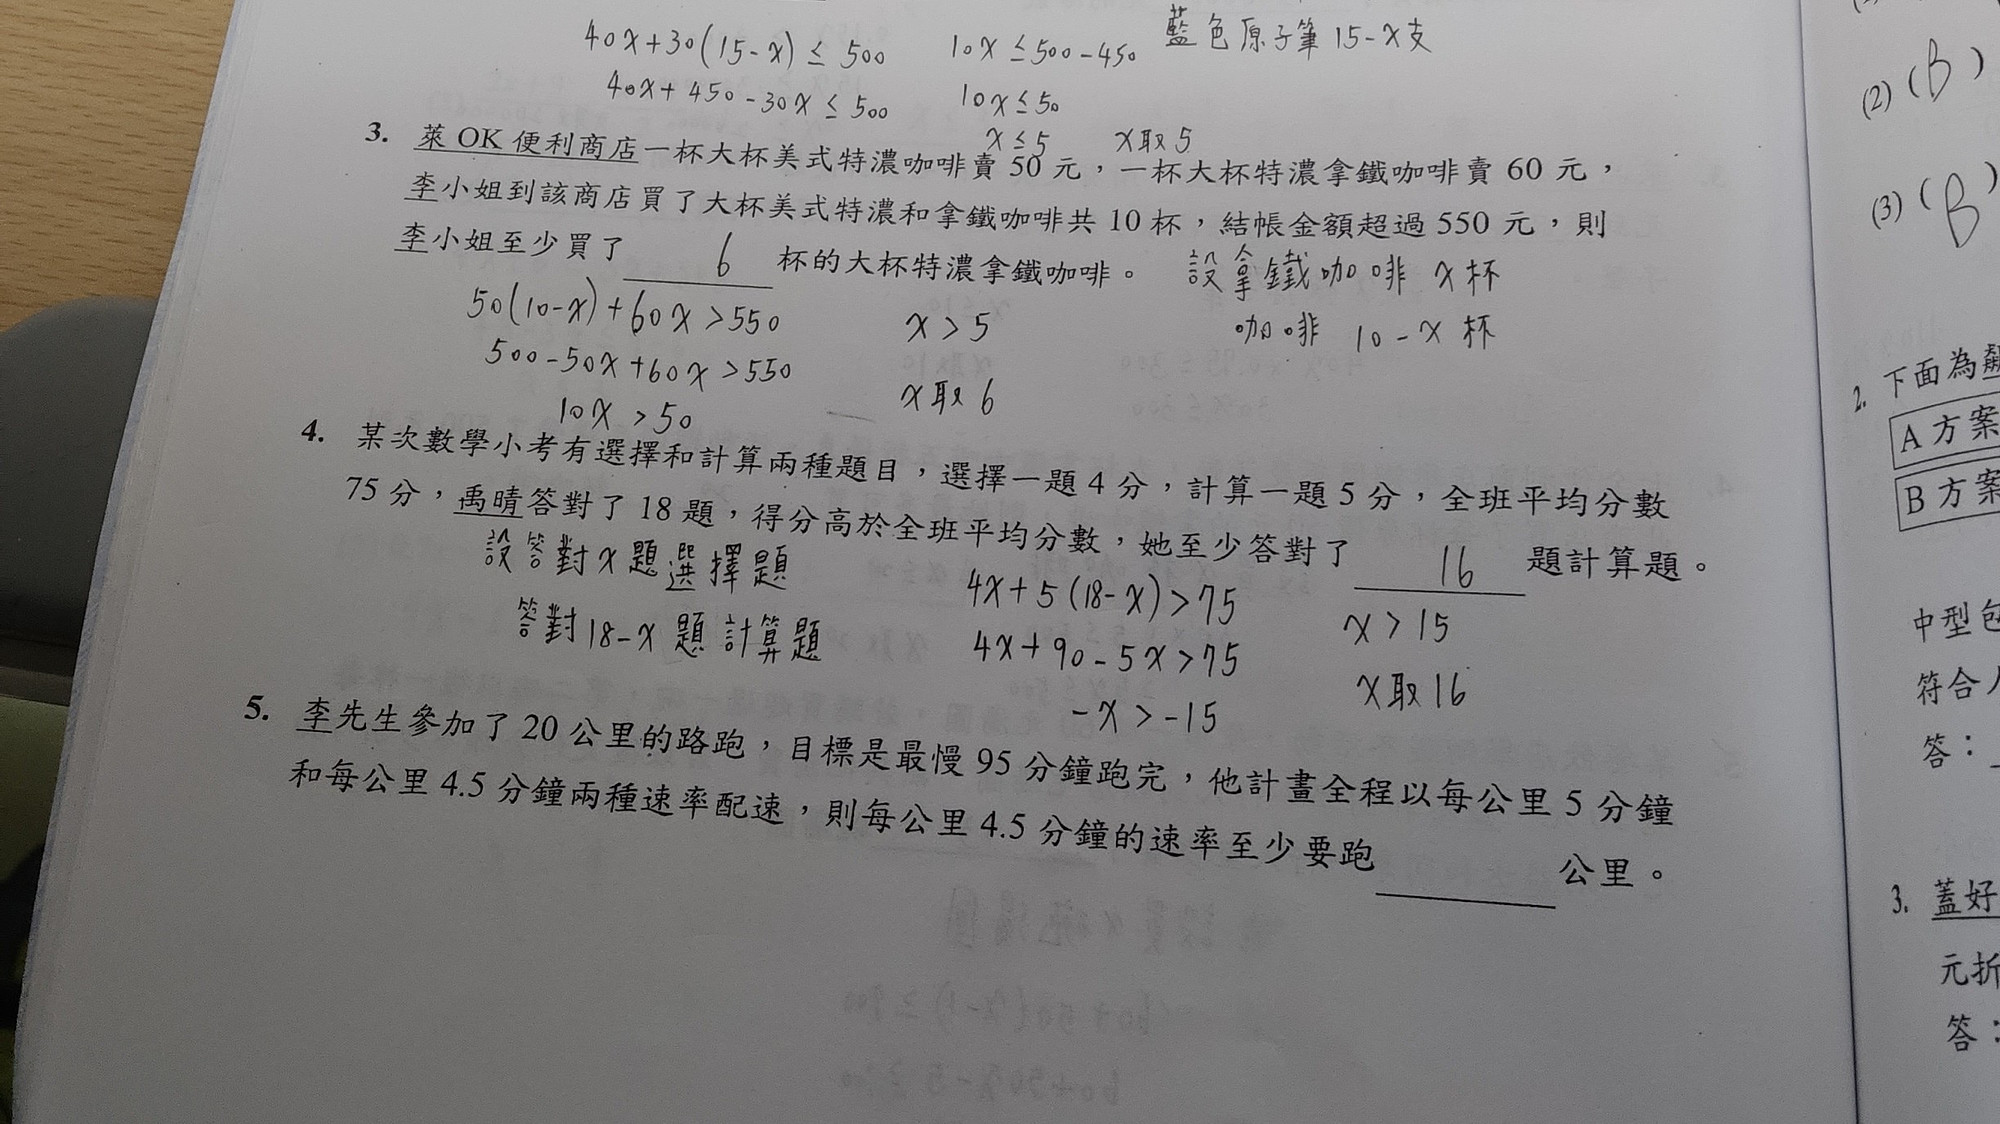 40x+30(15-x)≤500 10x≤500-450 藍色原子筆15-x支
40x+450-30x≤500 10x≤50
x≤5 x取5
3. 萊OK便利商店一杯大杯美式特濃咖啡賣50元，一杯大杯特濃拿鐵咖啡賣60元，
李小姐到該商店買了大杯美式特濃和拿鐵咖啡共10杯，結帳金額超過550元，則
李小姐至少買了 6 杯的大杯特濃拿鐵咖啡。 設拿鐵咖啡x杯
50(10-x)+60x>550 x>5 咖啡 10-x杯
500-50x+60x>550 x取6
10x>50
4. 某次數學小考有選擇和計算兩種題目，選擇一題4分，計算一題5分，全班平均分數
75分，禹晴答對了18題，得分高於全班平均分數，她至少答對了 16 題計算題。
設答對x題選擇題 4x+5(18-x)>75 x>15
答對18-x題計算題 4x+90-5x>75 x取16
-x>-15
5. 李先生參加了20公里的路跑，目標是最慢95分鐘跑完，他計畫全程以每公里5分鐘
和每公里4.5分鐘兩種速率配速，則每公里4.5分鐘的速率至少要跑 公里。
(2)(B)
(3)(B)
2. 下面為
A方案
B方案
中型包
符合
答：
3. 蓋好
元折
答：